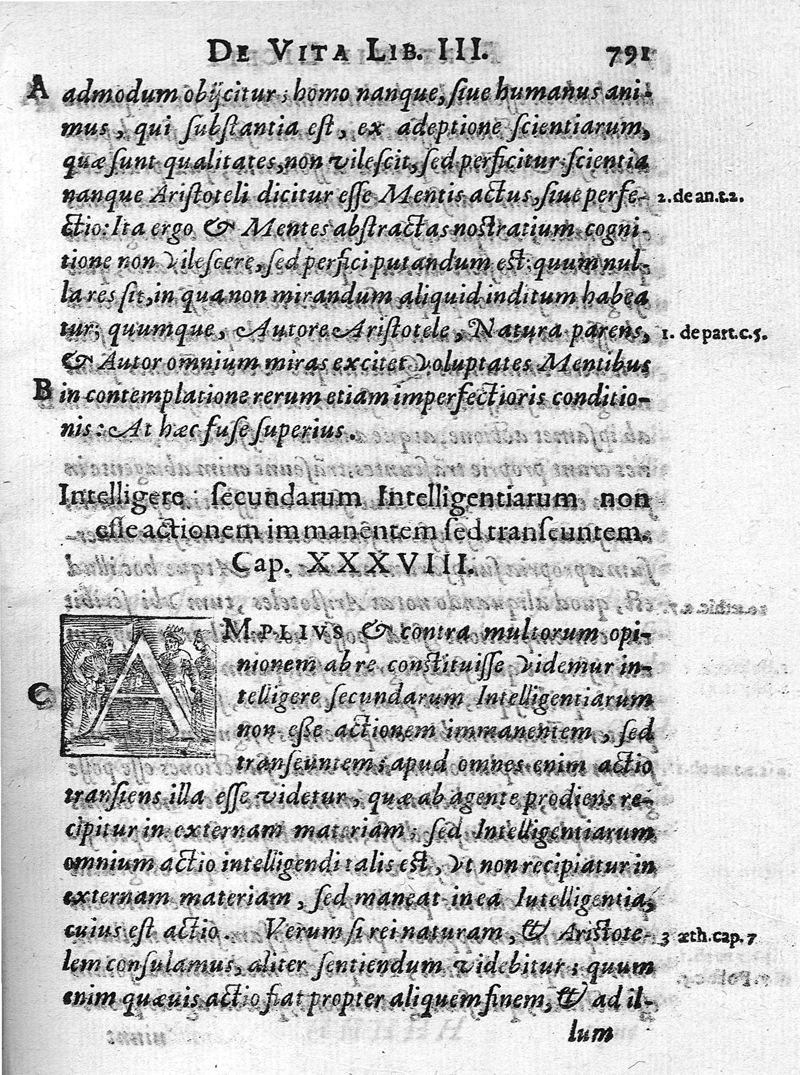 DE VITA LIB. III. 791
A admodum obijcitur; homo nanque, siue humanus ani-
mus, qui substantia est, ex adeptione scientiarum,
quæ sunt qualitates, non vilescit, sed perficitur. scientia
nanque Aristoteli dicitur esse Mentis actus, siue perfe- 2. de an.t.2.
ctio: Ita ergo & Mentes abstractas nostratium cogni-
tione non vilescere, sed perfici putandum est: quum nul-
la res sit, in qua non mirandum aliquid inditum habea
tur; quumque, Autore Aristotele, Natura parens, 1. de part.c.5.
& Autor omnium miras excitet voluptates Mentibus
B in contemplatione rerum etiam imperfectioris conditio-
nis: At hæc fuse superius.
Intelligere secundarum Intelligentiarum non
esse actionem immanentem sed transeuntem.
Cap. XXXVIII.
AMPLIVS & contra multorum opi-
nionem ab re constituisse videmur in-
C telligere secundarum Intelligentiarum
non esse actionem immanentem, sed
transeuntem; apud omnes enim actio
transiens illa esse videtur, quæ ab agente prodiens re-
cipitur in externam materiam; sed Intelligentiarum
omnium actio intelligendi talis est, vt non recipiatur in
externam materiam, sed maneat in ea Iutelligentia,
cuius est actio. Verum si rei naturam, & Aristote- 3 æth.cap.7
lem consulamus, aliter sentiendum videbitur; quum
enim quæuis actio fiat propter aliquem finem, & ad il-
lum